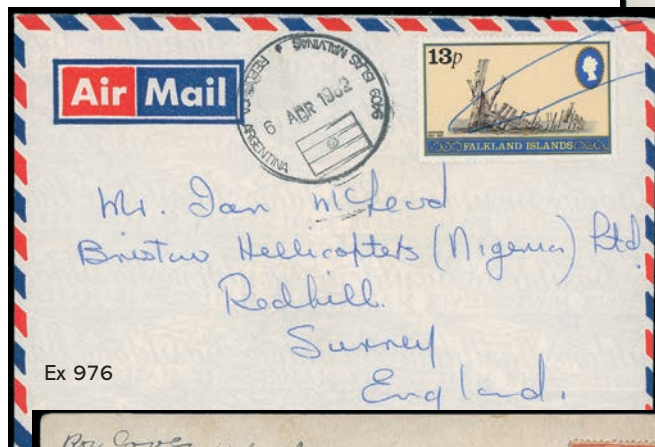 Air Mail
9409 ISLAS MALVINAS
REPUBLICA ARGENTINA
6 ABR 1982
13p
FALKLAND ISLANDS
Mr. Ian McLeod
Bristow Hellicopters (Nigeria) Ltd
Redhill.
Surrey
England.
Ex 976